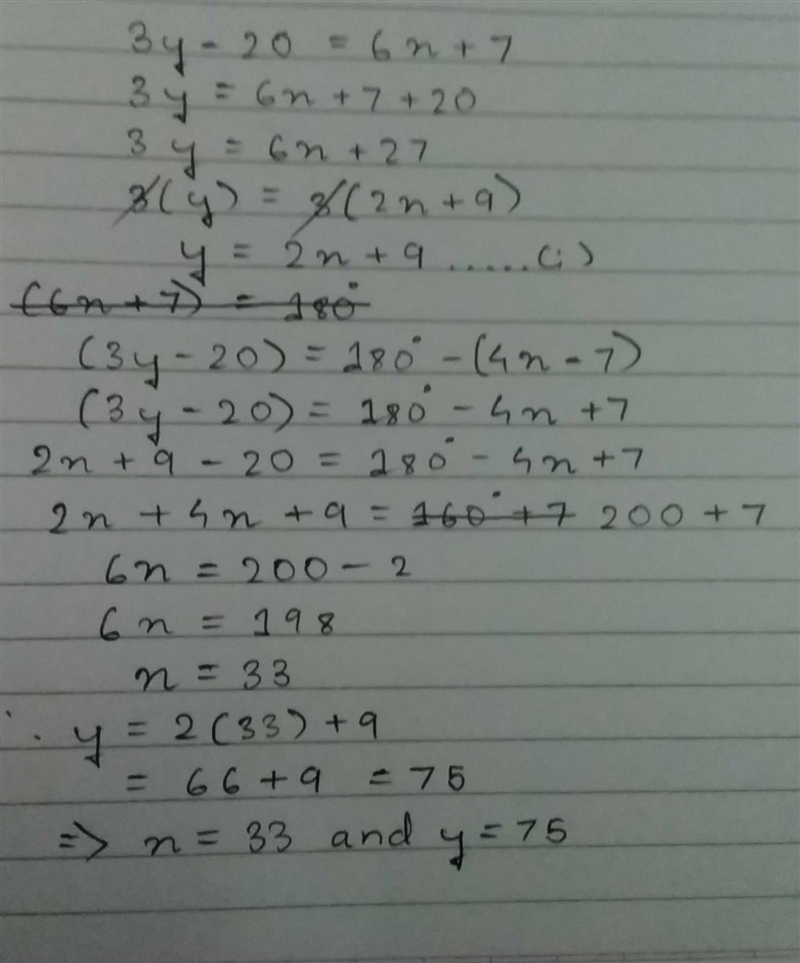 3y - 20 = 6n + 7
3y = 6n + 7 + 20
3y = 6n + 27
3(y) = 3(2n + 9)
y = 2n + 9 ......(i)
(6n + 7) = 180°
(3y - 20) = 180° - (4n - 7)
(3y - 20) = 180° - 4n + 7
2n + 9 - 20 = 180° - 4n + 7
2n + 4n + 9 = 160° + 7 200 + 7
6n = 200 - 2
6n = 198
n = 33
∴ y = 2(33) + 9
= 66 + 9 = 75
=> n = 33 and y = 75